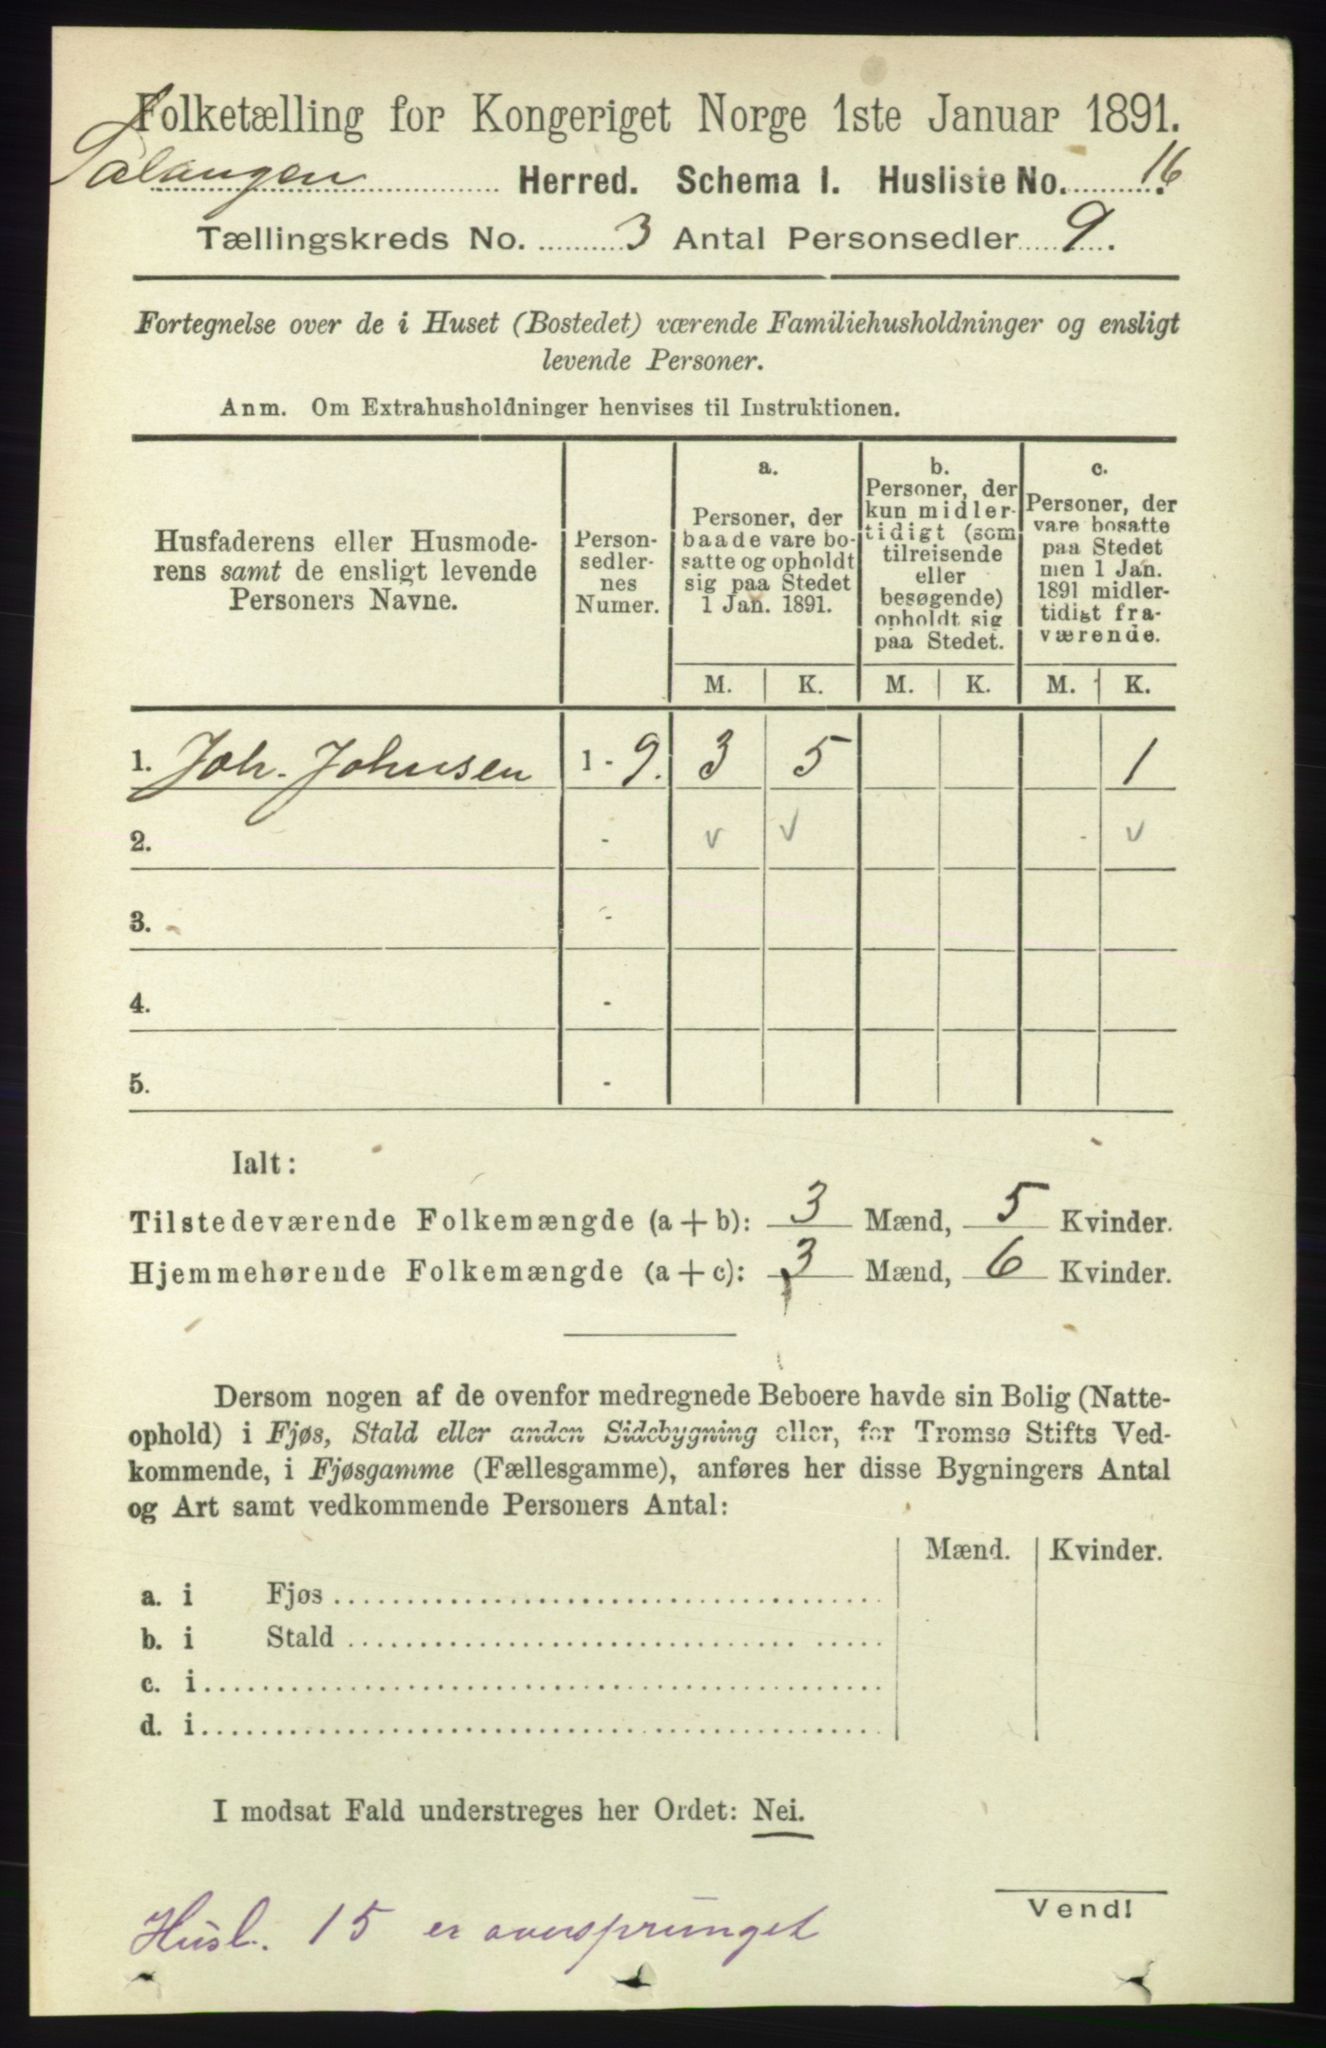 Folketælling for Kongeriget Norge 1ste Januar 1891.
Salangen Herred. Schema I. Husliste No. 16.
Tællingskreds No. 3 Antal Personsedler 9.
Fortegnelse over de i Huset (Bostedet) værende Familiehusholdninger og ensligt
levende Personer.
Anm. Om Extrahusholdninger henvises til Instruktionen.
Husfaderens eller Husmode-
rens samt de ensligt levende
Personers Navne.
Person-
sedler-
nes
Numer.
a.
Personer, der
baade vare bo-
satte og opholdt
sig paa Stedet
1 Jan. 1891.
b.
Personer, der
kun midler-
tidigt (som
tilreisende
eller
besøgende)
opholdt sig
paa Stedet.
c.
Personer, der
vare bosatte
paa Stedet
men 1 Jan.
1891 midler-
tidigt fra-
værende.
M. K. M. K. M. K.
1. Joh. Johnsen 1 - 9. 3 5 1
2. - v v v
3. -
4. -
5. -
Ialt:
Tilstedeværende Folkemængde (a + b): 3 Mænd, 5 Kvinder.
Hjemmehørende Folkemængde (a + c): 3 Mænd, 6 Kvinder.
Dersom nogen af de ovenfor medregnede Beboere havde sin Bolig (Natte-
ophold) i Fjøs, Stald eller anden Sidebygning eller, for Tromsø Stifts Ved-
kommende, i Fjøsgamme (Fællesgamme), anføres her disse Bygningers Antal
og Art samt vedkommende Personers Antal:
Mænd. Kvinder.
a. i Fjøs
b. i Stald
c. i
d. i
I modsat Fald understreges her Ordet: Nei.
Vend!
Husl. 15 er oversprunget